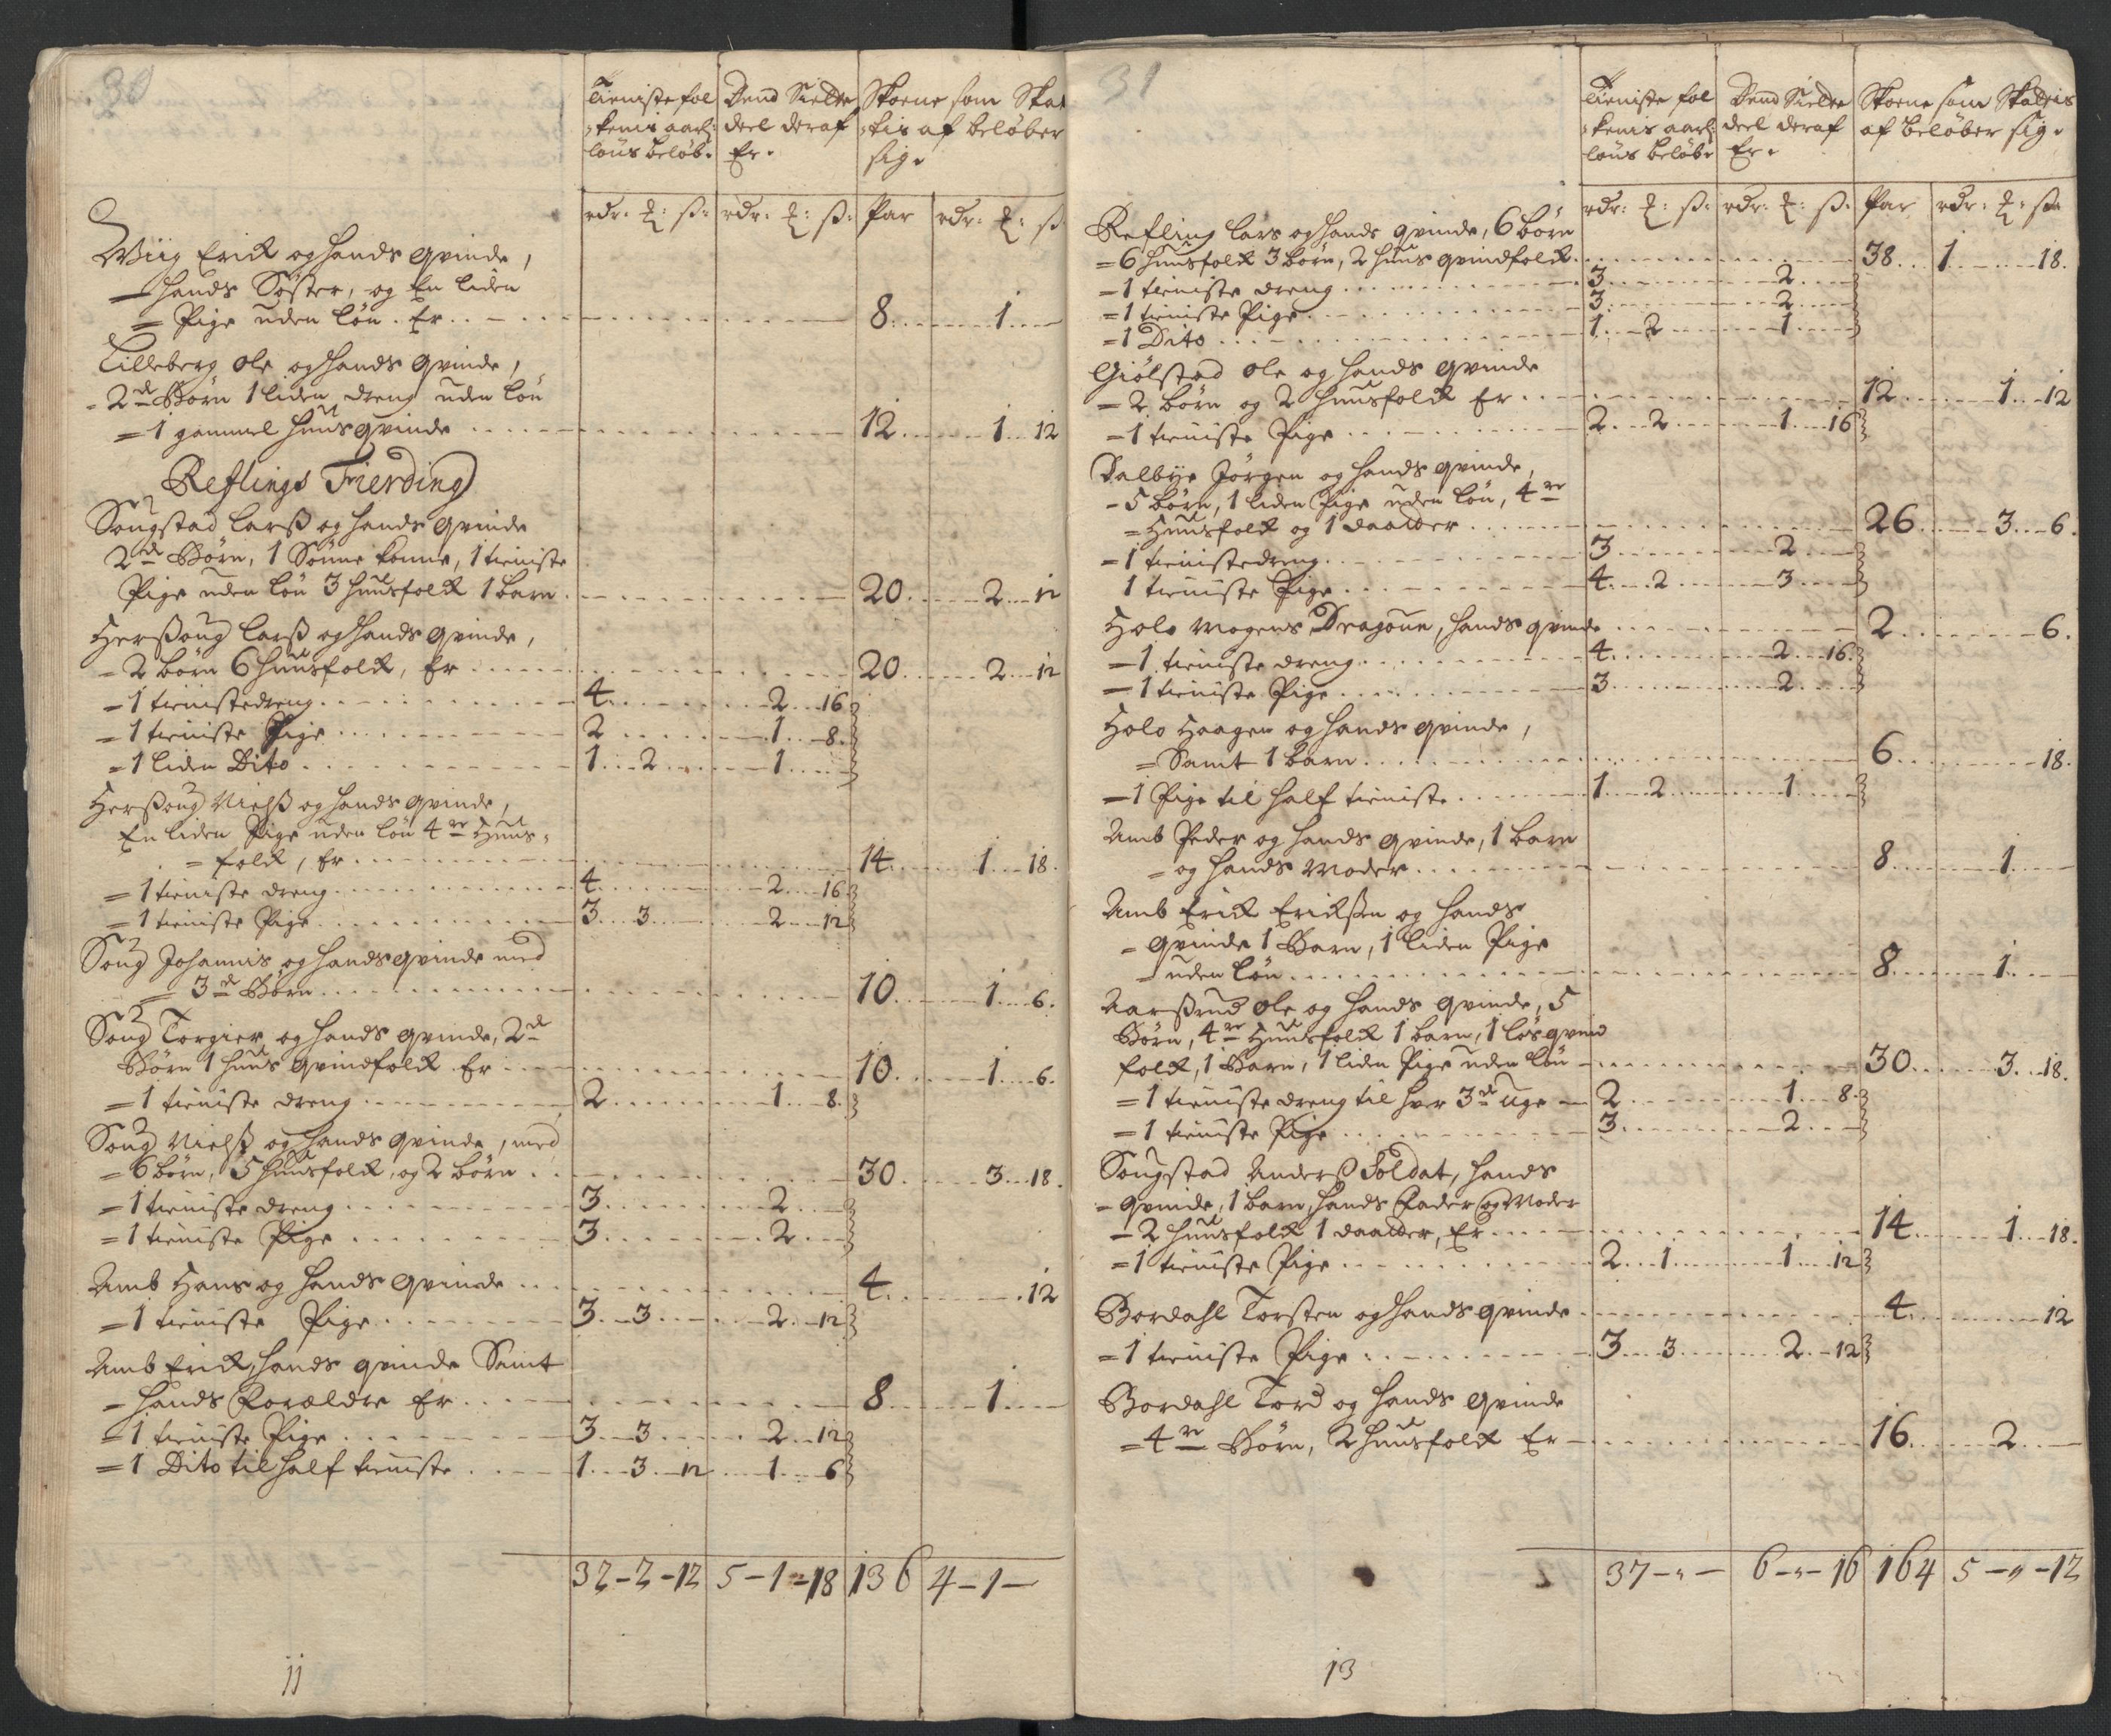 30
Tieniste fol
kenis aarl:
løns beløb.
Dend Siette
deel deraf
Er.
Skoene som Skat
tis af beløber
sig.
rdr: ℥: ß: rdr: ℥: ß: Par rdr: ℥: ß
Wiig Erick og hands qvinde,
hands Søster, og En liden
= Pige uden løn. Er 8 1
Lilleberg Ole og hands qvinde,
2de Børn 1 liden dreng uden løn
= 1 gammel huusqvinde 12 1 12
Reflings Fierding
Sougstad Larß og hands qvinde
2de Børn, 1 Sønne konne, 1 tieniste
Pige uden løn 3 huusfolck 1 barn 20 2 12
Herßoug Larß og hands qvinde,
- 2 børn 6 huusfolck, Er 20 2 12
= 1 tienistedreng 4 2 16
= 1 tieniste Pige 2 1 8
= 1 liden Dito 1 2 1
Herßoug Nielß og hands qvinde,
En liden Pige uden løn 4re Huus-
= folck, Er 14 1 18
= 1 tieniste dreng 4 2 16
= 1 tieniste Pige 3 3 2 12
Soug Johannis og hands qvinde med
= 3de Børn 10 1 6
Soug Torgier og hands qvinde, 2de
Børn 1 huus qvindfolck Er 10 1 6
= 1 tieniste dreng 2 1 8
Soug Nielß og hands qvinde, med
= 6 børn, 5 huusfolck, og 2 børn 30 3 18
= 1 tieniste dreng 3 2
= 1 tieniste Pige 3 2
Amb Hans og hands qvinde 4 12
= 1 tieniste Pige 3 3 2 12
Amb Erick, hands qvinde Samt
= hands Forældre Er 8 1
= 1 tieniste Pige 3 3 2 12
= 1 Dito til half tieniste 1 3 12 1 6
32 - 2 - 12 5 - 1 - 18 136 4 - 1 -
11
31
Tieniste fol
kenis aarl:
løns beløb
Dend Siette
deel deraf
Er.
Skoene som Skattis
af beløber sig.
rdr: ℥: ß: rdr: ℥: ß: Par rdr: ℥: ß
Refling Lars og hands qvinde, 6 børn
= 6 huusfolck 3 børn, 2 huus qvindfolck 38 1 18
= 1 tieniste dreng 3 2
= 1 tieniste Pige 3 2
= 1 Dito 1 2 1
Giølstad Ole og hands qvinde
= 2 børn og 2 huusfolck Er 12 1 12
= 1 tieniste Pige 2 2 1 16
Dalbye Jørgen og hands qvinde,
- 5 børn, 1 liden Pige uden løn, 4re
= huusfolck og 1 daatter 26 3 6
= 1 tienistedreng 3 2
1 tieniste Pige 4 2 3
Holo Mogens Dragoun, hands qvinde 2 6
= 1 tieniste dreng 4 2 16
= 1 tieniste Pige 3 2
Holo Haagen og hands qvinde,
= Samt 1 barn 6 18
= 1 Pige til half tieniste 1 2 1
Amb Peder og hands qvinde, 1 barn
= og hands Moder 8 1
Amb Erick Erickßen og hands
= qvinde 1 Barn, 1 liden Pige
= uden løn 8 1
Aarßrud Ole og hands qvinde, 5
Børn, 4re Huusfolck 1 barn, 1 løs qvind
folck, 1 Barn, 1 liden Pige uden løn 30 3 18
= 1 tieniste dreng til hver 3de Uge 2 1 8
= 1 tieniste Pige 3 2
Sougstad Anderß Soldat, hands
= qvinde, 1 barn, hands Fader og Moder
= 2 huusfolck 1 daatter, Er 14 1 18
= 1 tieniste Pige 2 1 1 12
Bordahl Torsten og hands qvinde 4 12
= 1 tieniste Pige 3 3 2 12
Bordahl Tord og hands qvinde
= 4re Børn, 2 huusfolck Er 16 2
37 - " - 6 - " - 16 164 5 - " - 12
13